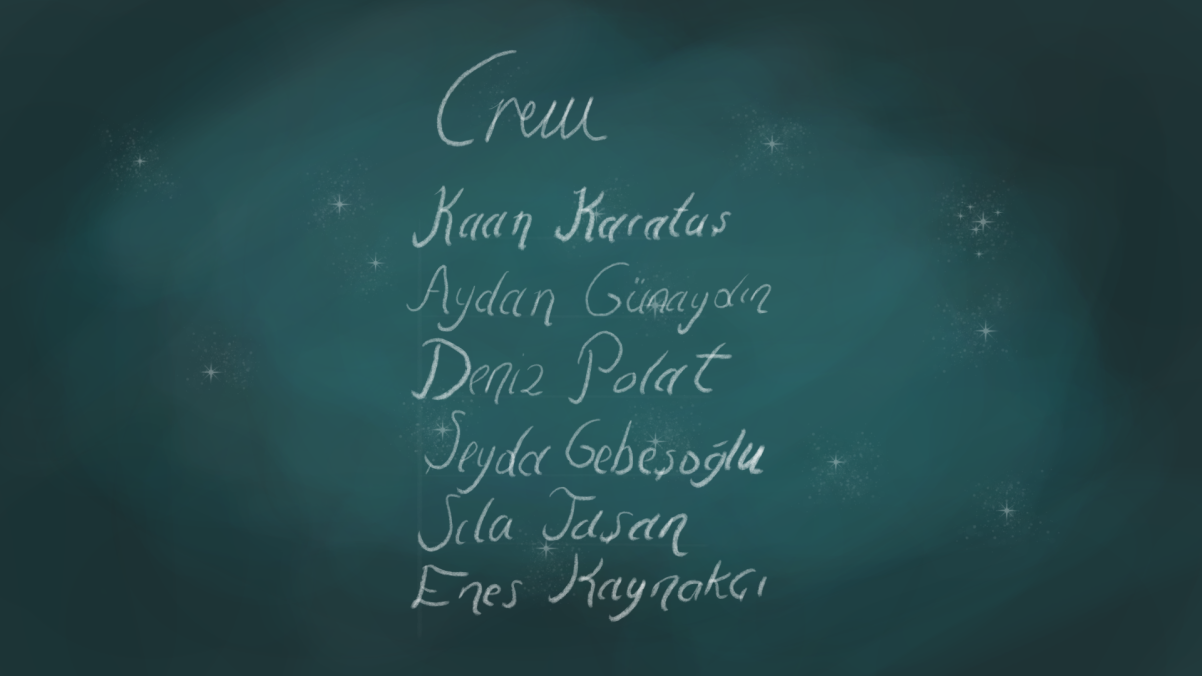 Crew
Kaan Karataş
Aydan Günaydın
Deniz Polat
Şeyda Gebeşoğlu
Sıla Taşan
Enes Kaynakçı